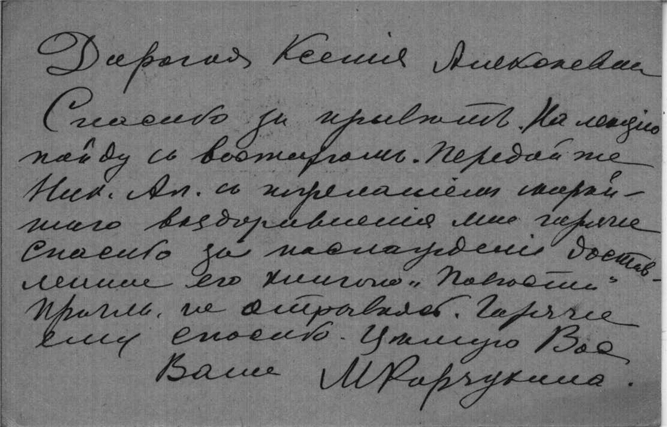 Дорогая Ксенія Алексеевна
Спасибо за привѣтъ. На лекцію
пойду съ восторгомъ. Передайте
Ник. Ал. съ пожеланіемъ скорѣй-
шаго выздоровленія мое горячее
спасибо за наслажденіе достав-
ленное его книгою „Повѣсти“
Прочла, не отрываясь. Горячее
ему спасибо. Цѣлую Васъ
Ваша М